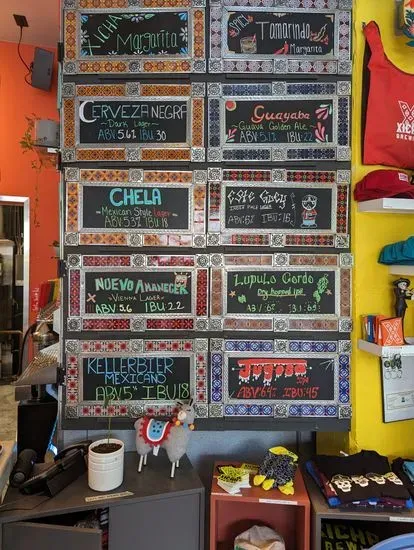 LUCHA
Margarita
SPICY
Tamarindo
Margarita
CERVEZA NEGRA
~Dark Lager~
ABV 5.6% IBU:30
Guayaba
~Guava Golden Ale~
ABV:5.1% IBU:22
CHELA
~Mexican Style Lager~
ABV:5.3% IBU:18
Este Grey
ABV:6% IBU:15
NUEVO AMANECER
~VIENNA LAGER~
ABV 5.6 IBU:22
Lupulo Gordo
Dry hopped ipa
KELLERBIER
MEXICANO
ABV 5% IBU 18
Jugosa
ABV:6.4% IBU:45
XICHA
BREWING